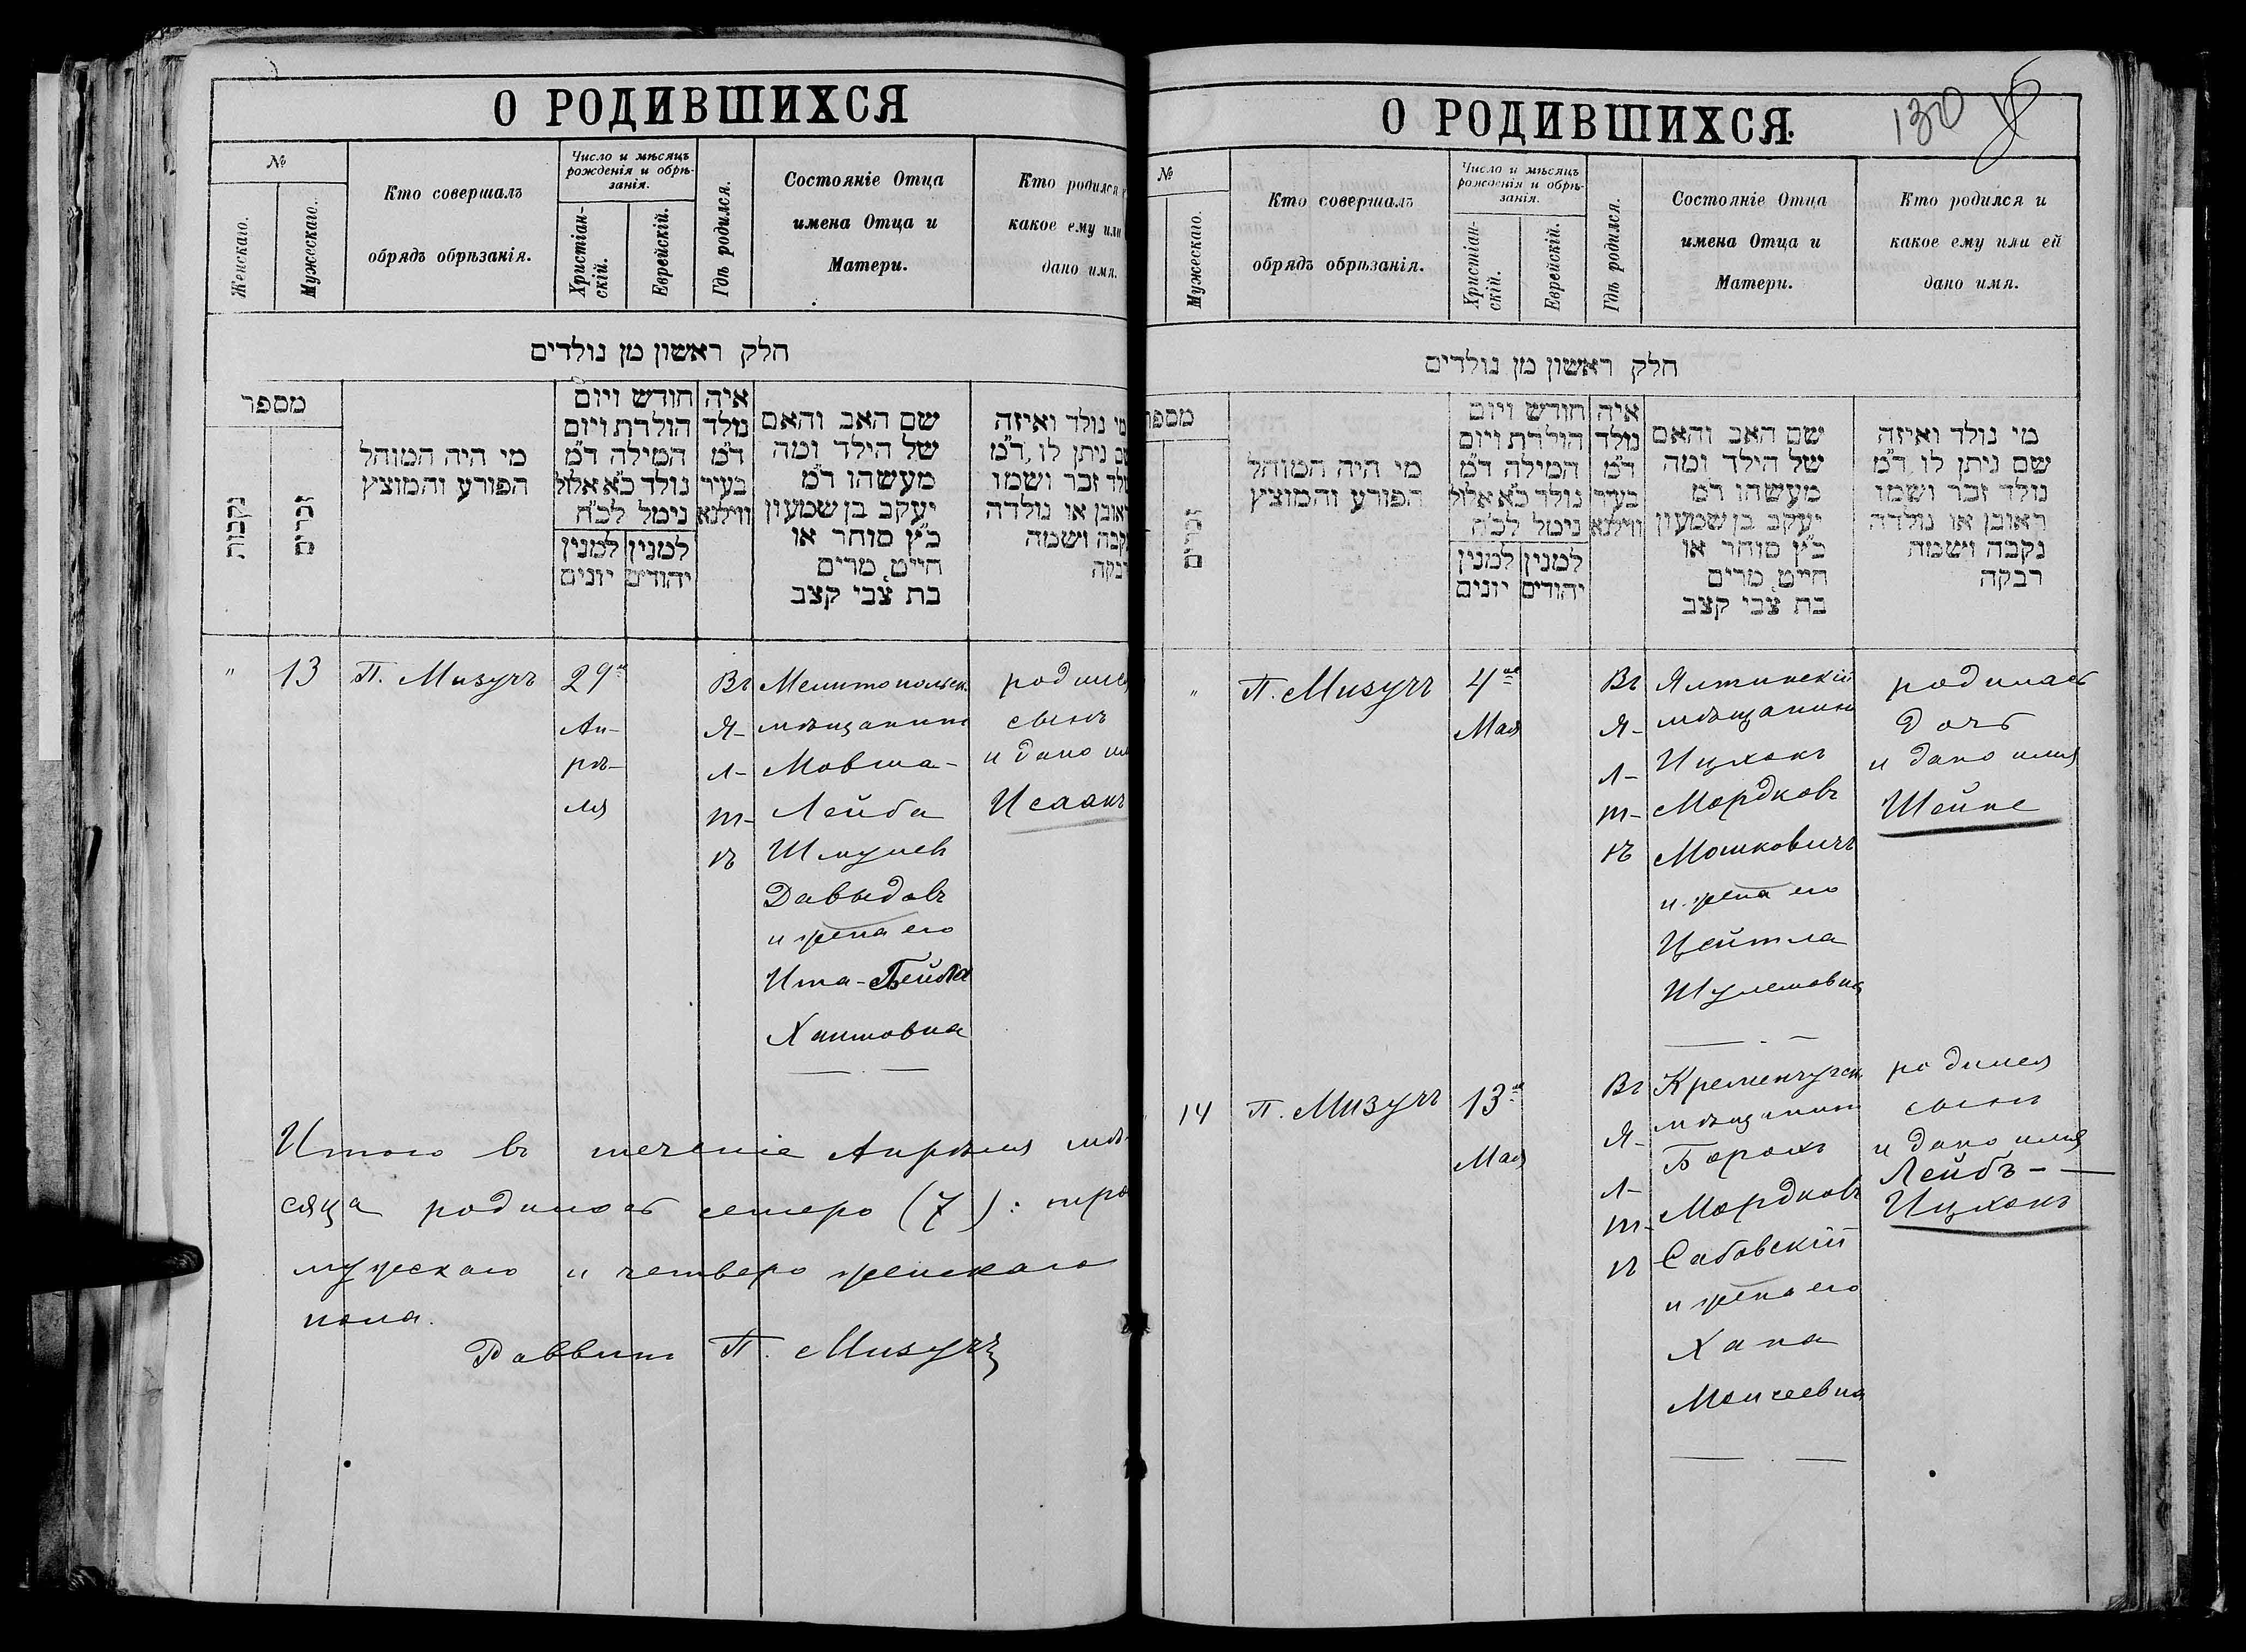 О РОДИВШИХСЯ
№
Женскаго.
Мужескаго.
Кто совершалъ
обрядъ обрѣзанія.
Число и мѣсяцъ
рожденія и обрѣ-
занія.
Христіан-
скій.
Еврейскій.
Гдѣ родился.
Состояніе Отца
имена Отца и
Матери.
Кто родился
какое ему или
дано имя.
חלק ראשון מן נולדים
מספר
נקבות
זכרים
מי היה המוהל
הפורע והמוצץ
חודש ויום
הולדת ויום
המילה ד"מ
נולד כ"א אלול
נימל לכ"ח
למנין
יהודים
למנין
יונים
איה
נולד
ד"מ
בעיר
ווילנא
שם האב והאם
של הילד ומה
מעשהו ד"מ
יעקב בן שמעון
כ"ץ סוחר או
חייט, מרים
בת צבי קצב
מי נולד ואיזה
שם ניתן לו, ד"מ
נולד זכר ושמו
ראובן או נולדה
נקבה ושמה
"
13
П. Мизучъ
29го
Ап-
рѣ-
ля
Въ
Я-
л-
т-
ѣ
Мелитопольск.
мѣщанинъ
Мовша-
Лейба
Шмулев
Давыдовъ
и жена его
Ита-Бейла
Хаимовна
родился
сынъ
и дано им
Исаакъ
Итого въ теченіе Апрѣля мѣ-
сяца родилось семеро (7): трое
мужескаго и четверо женскаго
пола.
Раввинъ П. Мизучъ
О РОДИВШИХСЯ.
130
№
Мужескаго.
Кто совершалъ
обрядъ обрѣзанія.
Число и мѣсяцъ
рожденія и обрѣ-
занія.
Христіан-
скій.
Еврейскій.
Гдѣ родился.
Состояніе Отца
имена Отца и
Матери.
Кто родился и
какое ему или ей
дано имя.
חלק ראשון מן נולדים
מספר
זכרים
מי היה המוהל
הפורע והמוצץ
חודש ויום
הולדת ויום
המילה ד"מ
נולד כ"א אלול
נימל לכ"ח
למנין
יהודים
למנין
יונים
איה
נולד
ד"מ
בעיר
ווילנא
שם האב והאם
של הילד ומה
מעשהו ד"מ
יעקב בן שמעון
כ"ץ סוחר או
חייט, מרים
בת צבי קצב
מי נולד ואיזה
שם ניתן לו, ד"מ
נולד זכר ושמו
ראובן או נולדה
נקבה ושמה
רבקה
"
П. Мизучъ
4го
Мая
Въ
Я-
л-
т-
ѣ
Ялтинскій
мѣщанинъ
Ицхокъ
Мордковъ
Мошковичъ
и жена его
Цейтла
Шулемовна
родилась
дочь
и дано имя
Шейне
14
П. Мизучъ
13го
Мая
Въ
Я-
л-
т-
ѣ
Кременчугск.
мѣщанинъ
Борохъ
Мордковъ
Сабовскій
и жена его
Хана
Моисеевна
родился
сынъ
и дано имя
Лейбъ-
Ицхокъ